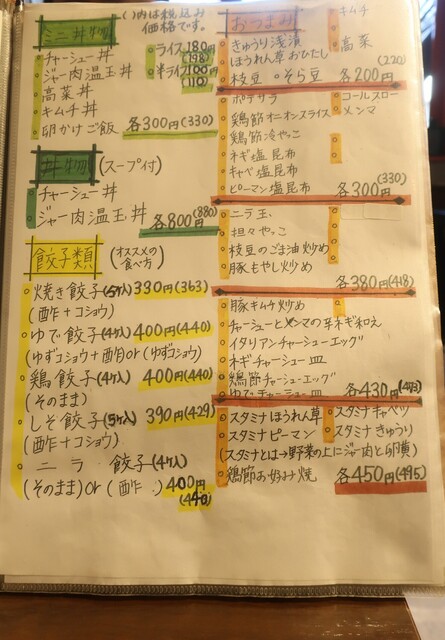 ミニ丼物
( )内は税込み
価格です。
チャーシュー丼
ジャー肉温玉丼
高菜丼
キムチ丼
卵かけご飯 各300円(330)
ライス180円
(198)
半ライス100円
(110)
丼物 (スープ付)
チャーシュー丼
ジャー肉温玉丼 各800円(880)
餃子類 (オススメの食べ方)
焼き餃子(5ケ入) 330円(363)
(酢+コショウ)
ゆで餃子(4ケ入) 400円(440)
(ゆずコショウ+酢醤)or(ゆずコショウ)
鶏餃子(4ケ入) 400円(440)
(そのまま)
しそ餃子(5ケ入) 390円(429)
(酢+コショウ)
ニラ餃子(4ケ入)
(そのまま)or(酢 ) 400円
(440)
おつまみ
キムチ
きゅうり浅漬
高菜
ほうれん草おひたし
枝豆 そら豆 各200円(220)
ポテサラ コールスロー
鶏節オニオンスライス メンマ
鶏節冷やっこ
ネギ塩昆布
キャベ塩昆布
ピーマン塩昆布 各300円(330)
ニラ玉
坦々やっこ
枝豆のごま油炒め
豚もやし炒め 各380円(418)
豚キムチ炒め
チャーシューとメンマの辛ネギ和え
イタリアンチャーシューエッグ
ネギチャーシュー皿
鶏節チャーシューエッグ
ゆでチャーシュー皿 各430円(473)
スタミナほうれん草 スタミナキャベツ
スタミナピーマン スタミナきゅうり
(スタミナとは→野菜の上にジャー肉と卵黄)
鶏節お好み焼 各450円(495)